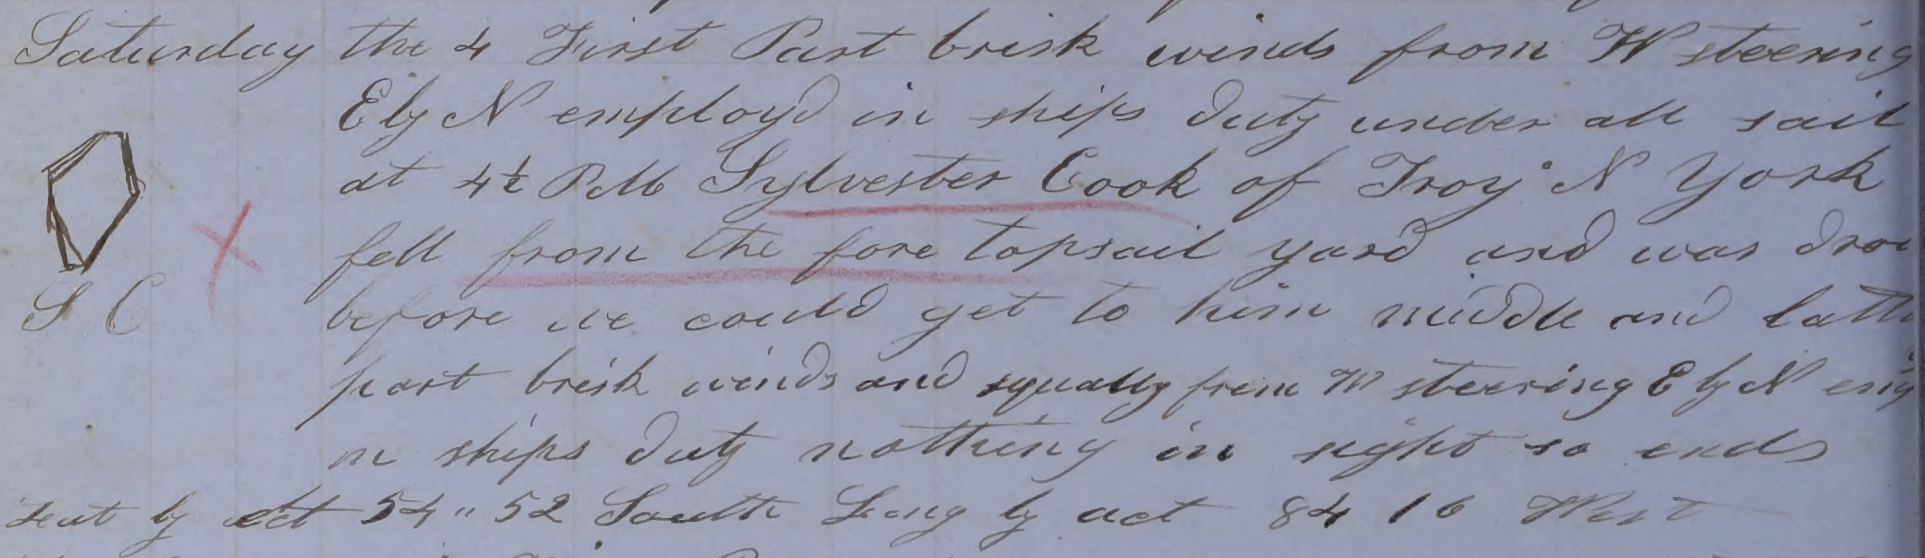 Saturday the 4 First Part brisk winds from W steering
E by N employd in ships duty under all sail
at 4½ P.M Sylvester Cook of Troy N York
fell from the fore topsail yard and was drow
before we could get to him middle and latte
part brisk winds and squally from W steering E by N
S C
in ships duty nothing in sight so ends
Lat by act 54" 52 South Long by act 84 16 West